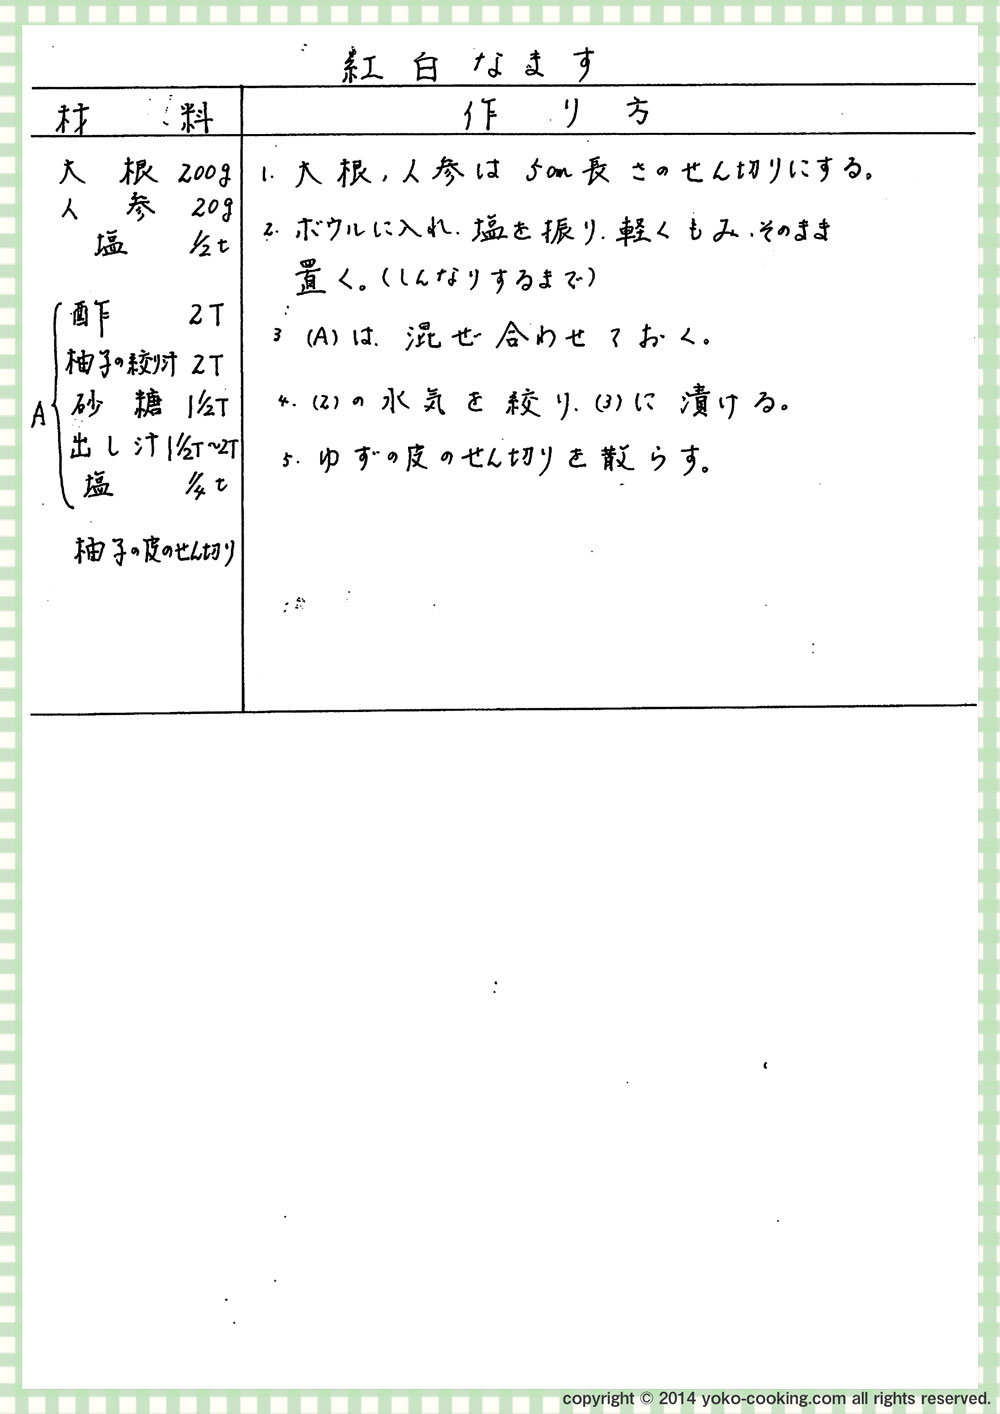 紅白なます
材料
作り方
大根 200g
人参 20g
塩 1/2t
A
酢 2T
柚子の絞り汁 2T
砂糖 1 1/2T
出し汁 1 1/2T~2T
塩 1/4t
柚子の皮のせん切り
1. 大根、人参は 5cm長さのせん切りにする。
2. ボウルに入れ、塩を振り、軽くもみ、そのまま
置く。(しんなりするまで)
3 (A)は、混ぜ合わせておく。
4. (2)の水気を絞り、(3)に漬ける。
5. ゆずの皮のせん切りを散らす。
copyright © 2014 yoko-cooking.com all rights reserved.